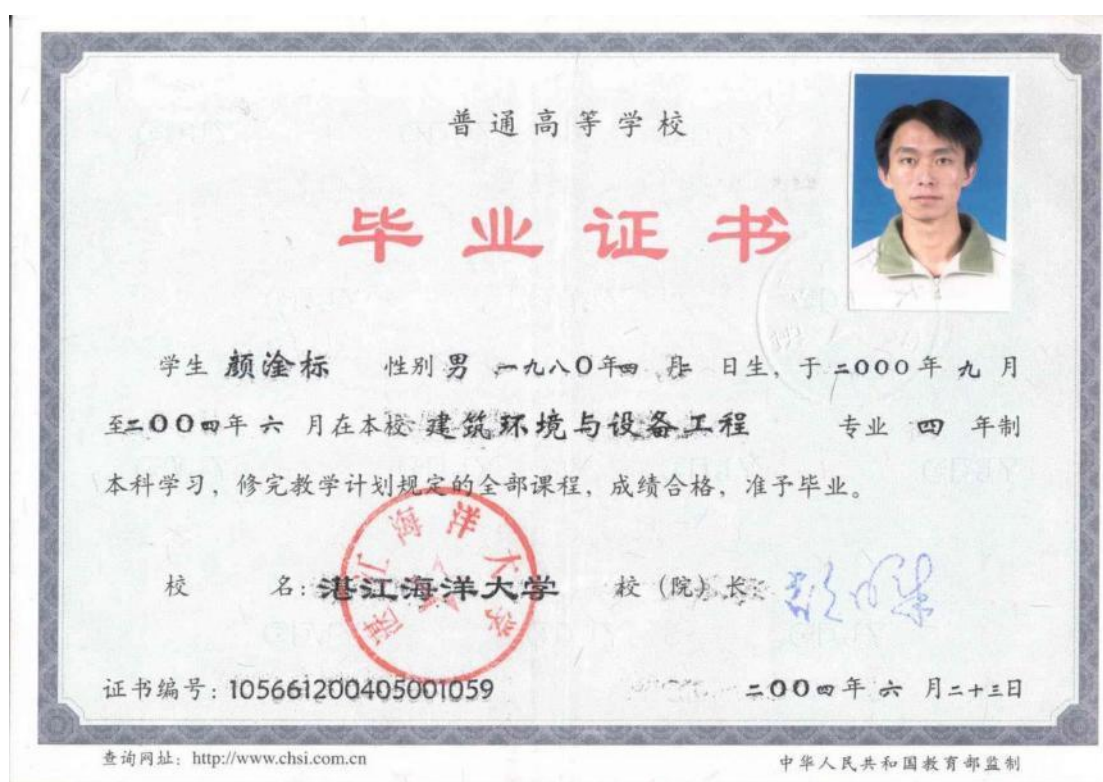 普通高等学校
毕业证书
学生 颜淦标 性别 男 一九八〇年四月二日生，于二〇〇〇年九月
至二〇〇四年六月在本校 建筑环境与设备工程 专业 四 年制
本科学习，修完教学计划规定的全部课程，成绩合格，准予毕业。
湛江海洋大学
校 名：湛江海洋大学 校（院）长：
证书编号：105661200405001059 二〇〇四年六月二十三日
查询网址：http://www.chsi.com.cn 中华人民共和国教育部监制